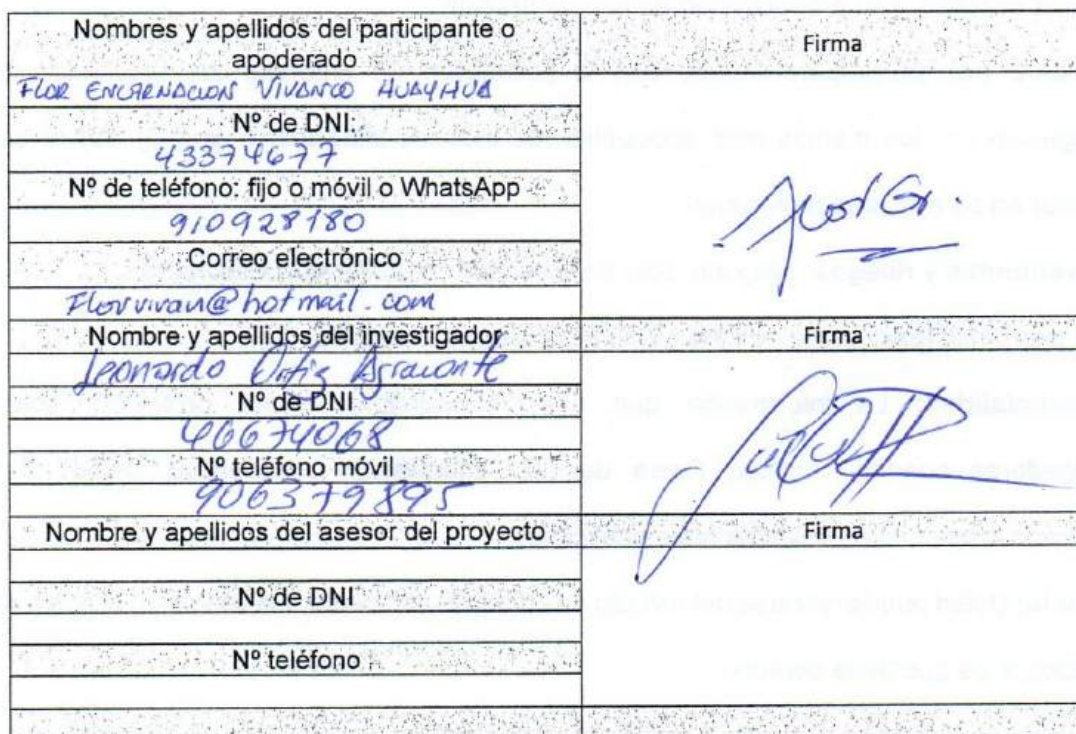 Nombres y apellidos del participante o
apoderado
Firma
FLOR ENCARNACION VIVANCO HUAYHUA
Nº de DNI:
43374677
Nº de teléfono: fijo o móvil o WhatsApp
910928180
Correo electrónico
Florvivan@hotmail.com
Nombre y apellidos del investigador
Firma
Leonardo Ortiz
Nº de DNI
46674068
Nº teléfono móvil
906379895
Nombre y apellidos del asesor del proyecto
Firma
Nº de DNI
Nº teléfono